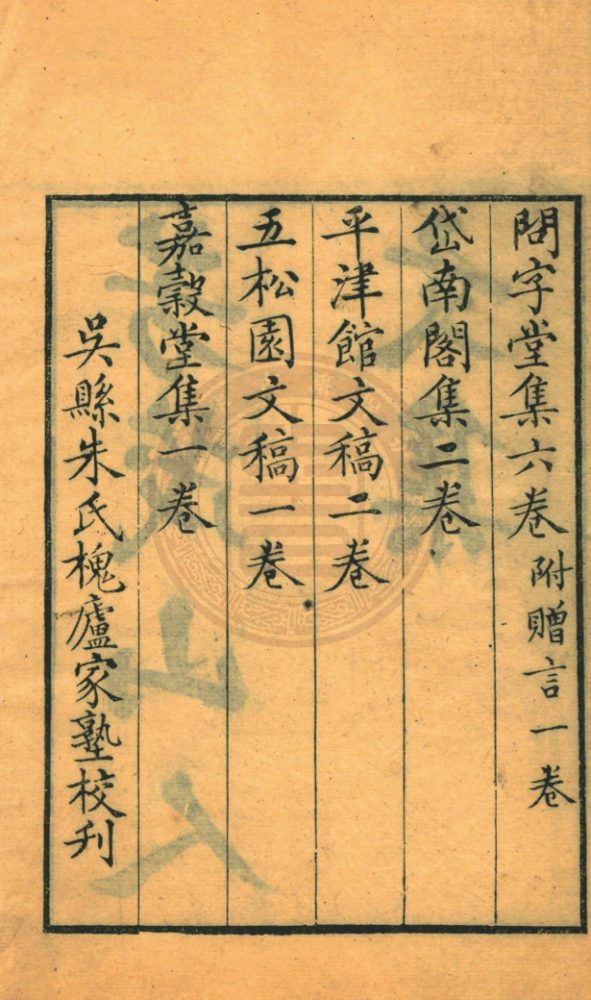 問字堂集六卷附贈言一卷
岱南閣集二卷
平津館文稿二卷
五松園文稿一卷
嘉穀堂集一卷
吳縣朱氏槐廬家塾校刋